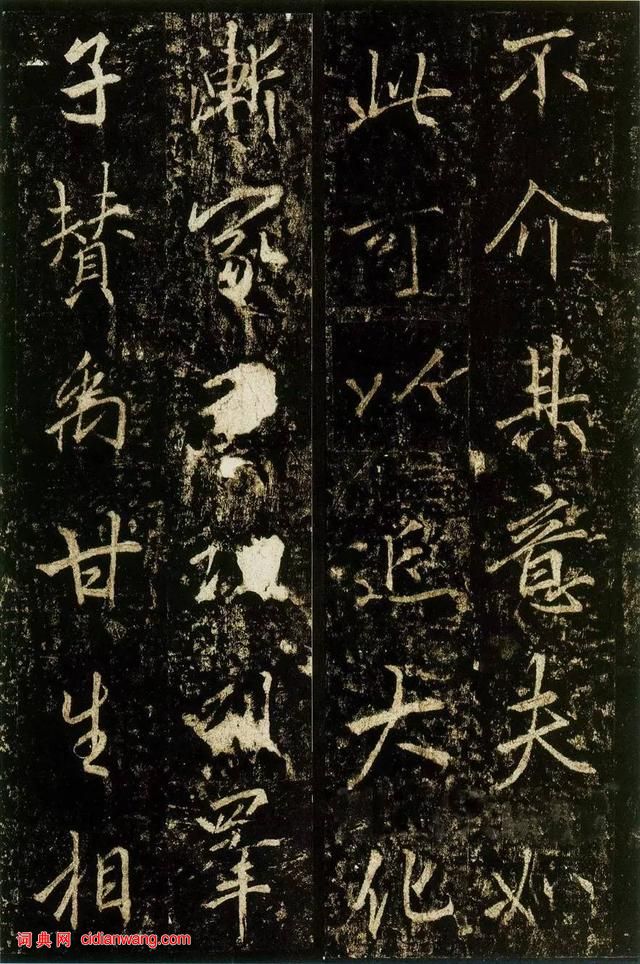 不介其意夫如
此可以追大化
漸家羣
子賛禹甘生相
词典网 cidianwang.com